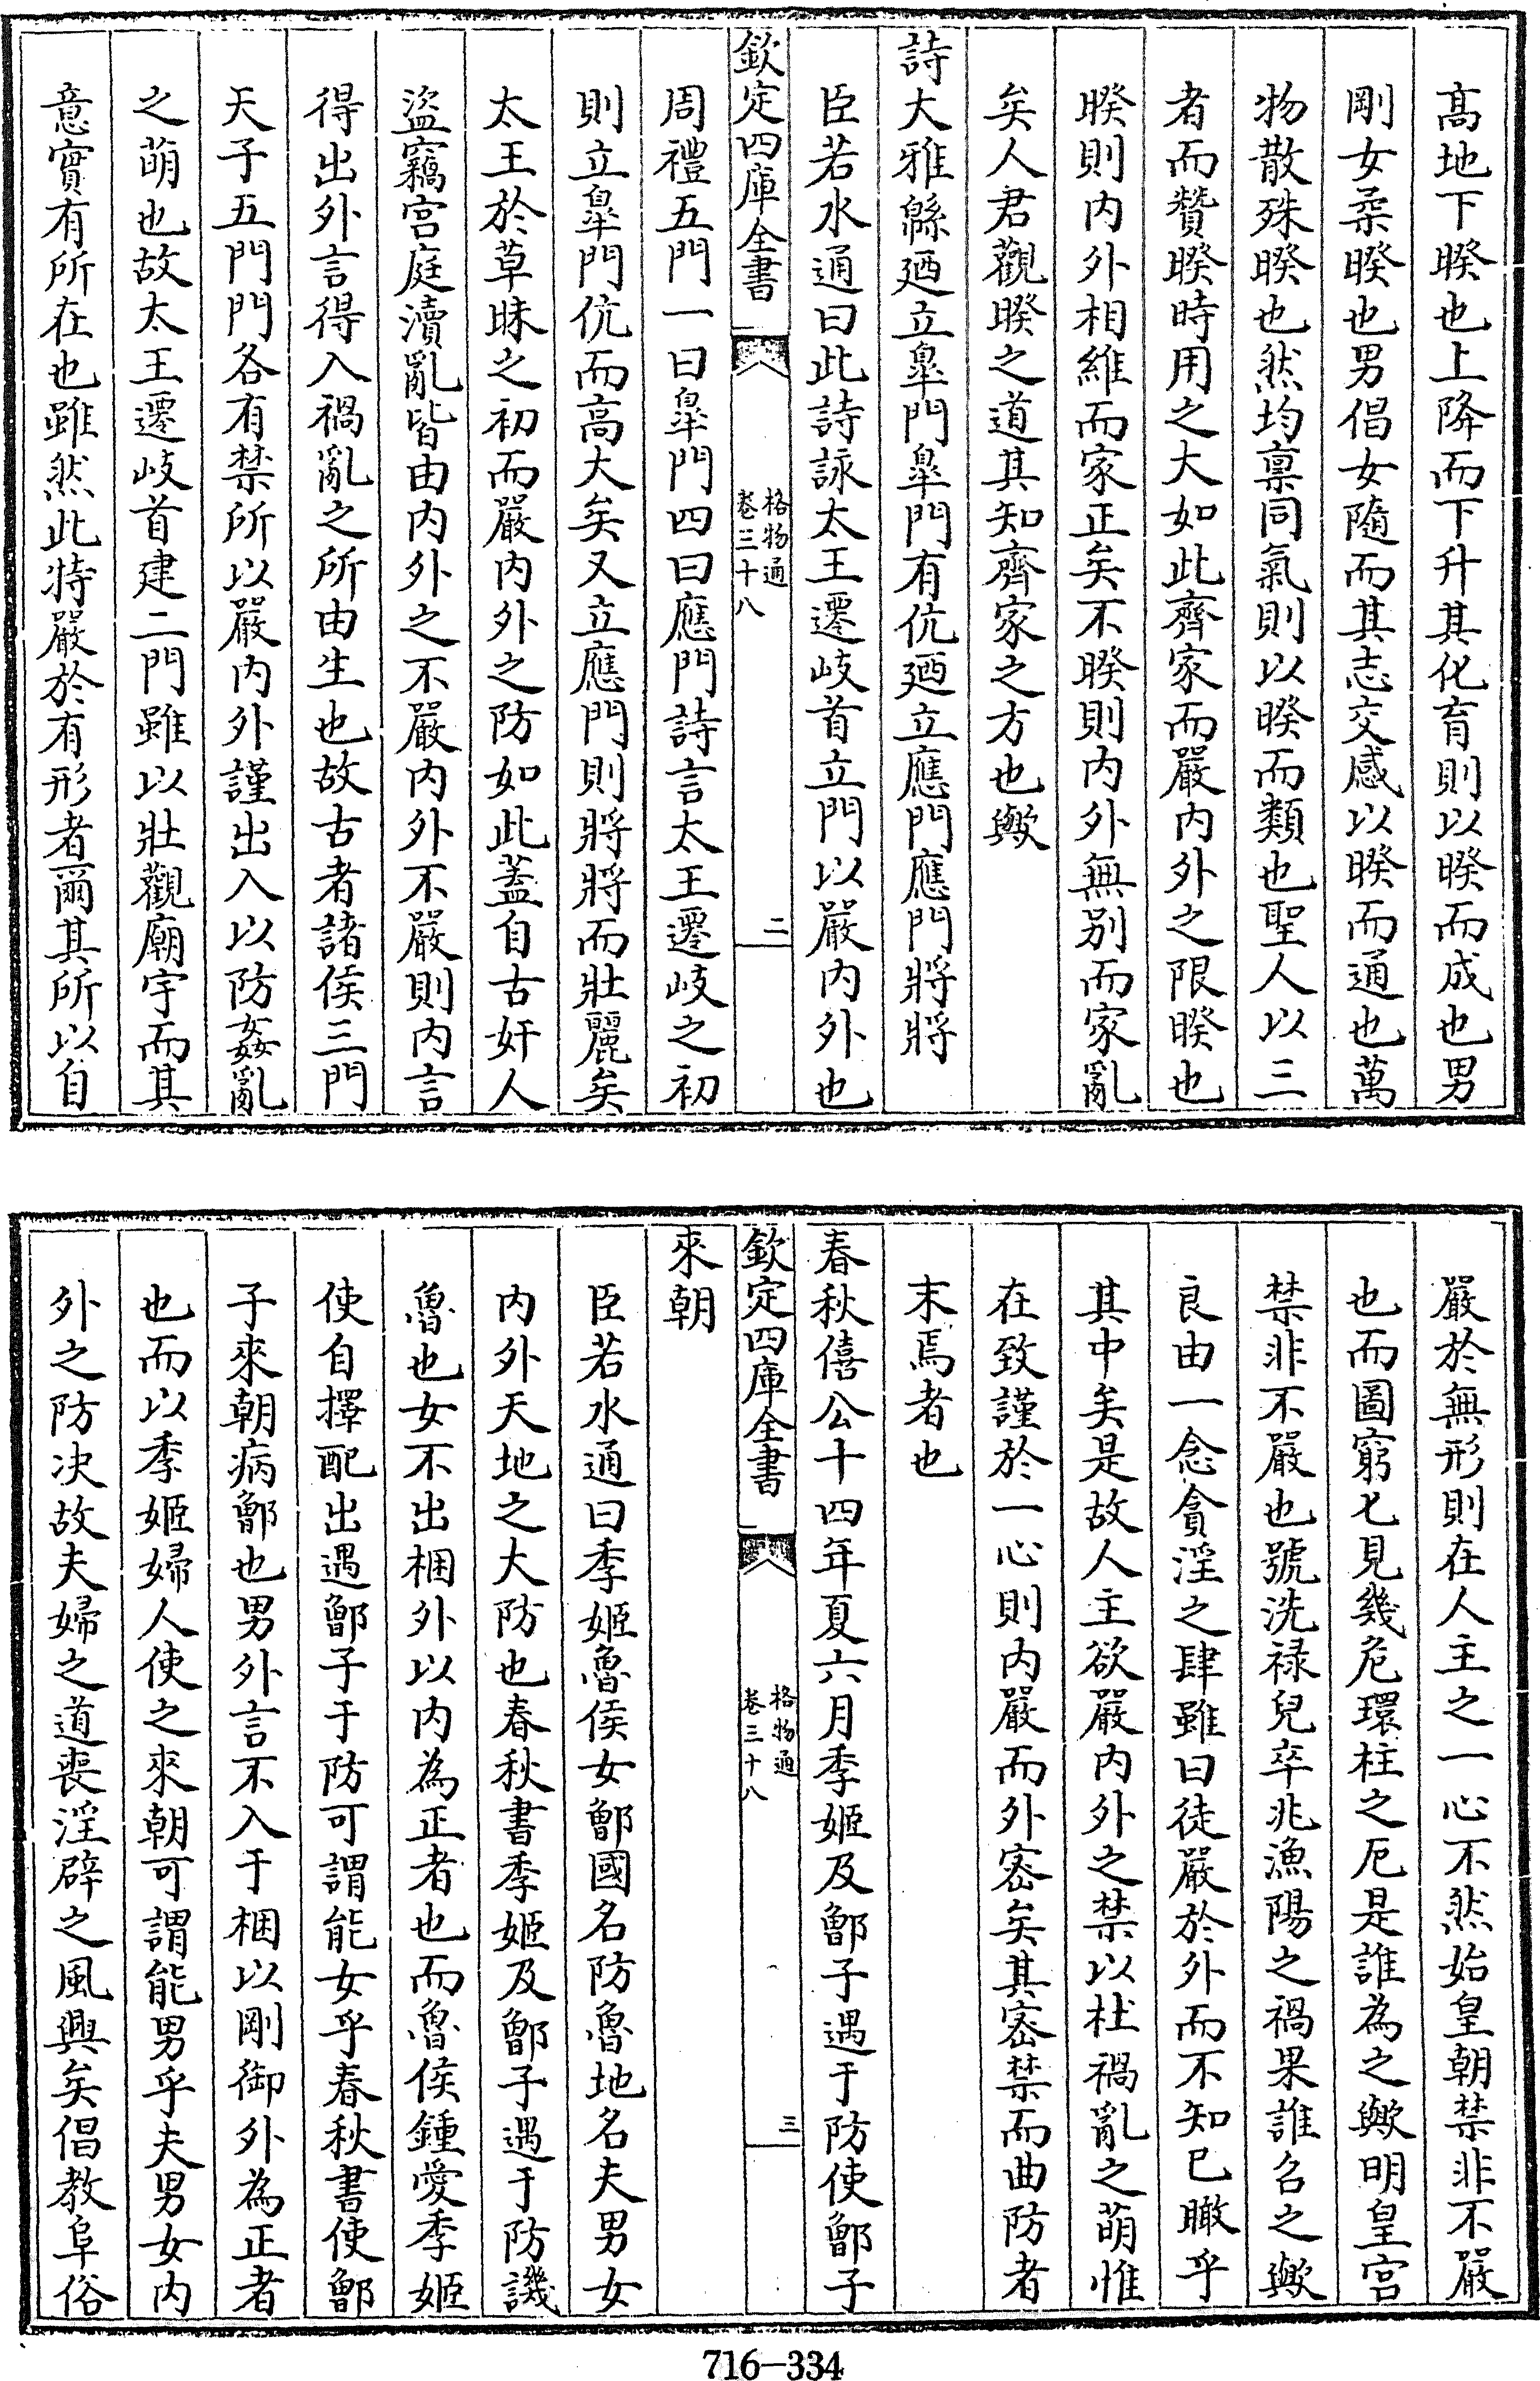 髙地下睽也上降而下升其化育則以睽而成也男
剛女柔睽也男倡女隨而其志交感以睽而通也萬
物散殊睽也然均稟同氣則以睽而類也聖人以三
者而贊睽時用之大如此齊家而嚴内外之限睽也
睽則内外相維而家正矣不睽則内外無别而家亂
矣人君觀睽之道其知齊家之方也歟
詩大雅緜廼立臯門臯門有伉廼立應門應門將將
臣若水通曰此詩詠太王遷岐首立門以嚴内外也
欽定四庫全書
格物通
卷三十八
二
周禮五門一曰臯門四曰應門詩言太王遷岐之初
則立臯門伉而高大矣又立應門則將將而壯麗矣
太王於草昧之初而嚴内外之防如此蓋自古奸人
盜竊宫庭瀆亂皆由内外之不嚴内外不嚴則内言
得出外言得入禍亂之所由生也故古者諸侯三門
天子五門門各有禁所以嚴内外謹出入以防姦亂
之萌也故太王遷岐首建二門雖以壯觀廟宇而其
意實有所在也雖然此特嚴於有形者爾其所以自
嚴於無形則在人主之一心不然始皇朝禁非不嚴
也而圖窮匕見幾危環柱之厄是誰為之歟明皇宫
禁非不嚴也號洗禄兒卒兆漁陽之禍果誰召之歟
良由一念貪淫之肆雖曰徒嚴於外而不知已瞰乎
其中矣是故人主欲嚴内外之禁以杜禍亂之萌惟
在致謹於一心則内嚴而外密矣其密禁而曲防者
末焉者也
春秋僖公十四年夏六月季姬及鄫子遇于防使鄫子
欽定四庫全書
格物通
卷三十八
三
來朝
臣若水通曰季姬魯侯女鄫國名防魯地名夫男女
内外天地之大防也春秋書季姬及鄫子遇于防譏
魯也女不出梱外以内為正者也而魯侯鍾愛季姬
使自擇配出遇鄫子于防可謂能女乎春秋書使鄫
子來朝病鄫也男外言不入于梱以剛御外為正者
也而以季姬婦人使之來朝可謂能男乎夫男女内
外之防决故夫婦之道喪淫辟之風興矣倡教阜俗
716-334